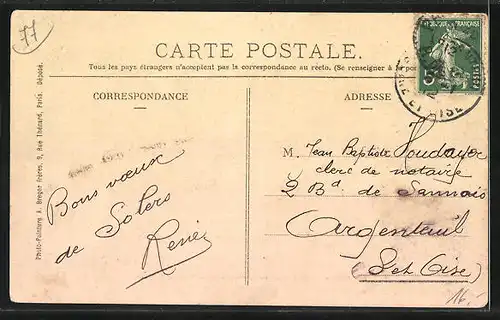 77
CARTE POSTALE.
Tous les pays étrangers n'acceptent pas la correspondance au recto. (Se renseigner à la
CORRESPONDANCE
ADRESSE
Photo-Peinture A. Breger Frères, 9, Rue Thénard, Paris. Déposé.
Bons vœux
de Solers
René
M. Jean Baptiste Houdayer
clerc de notaire
2 Bd de Sannois
Argenteuil
(S et Oise)
16.-
RÉPUBLIQUE FRANÇAISE
5
POSTES
ET OISE